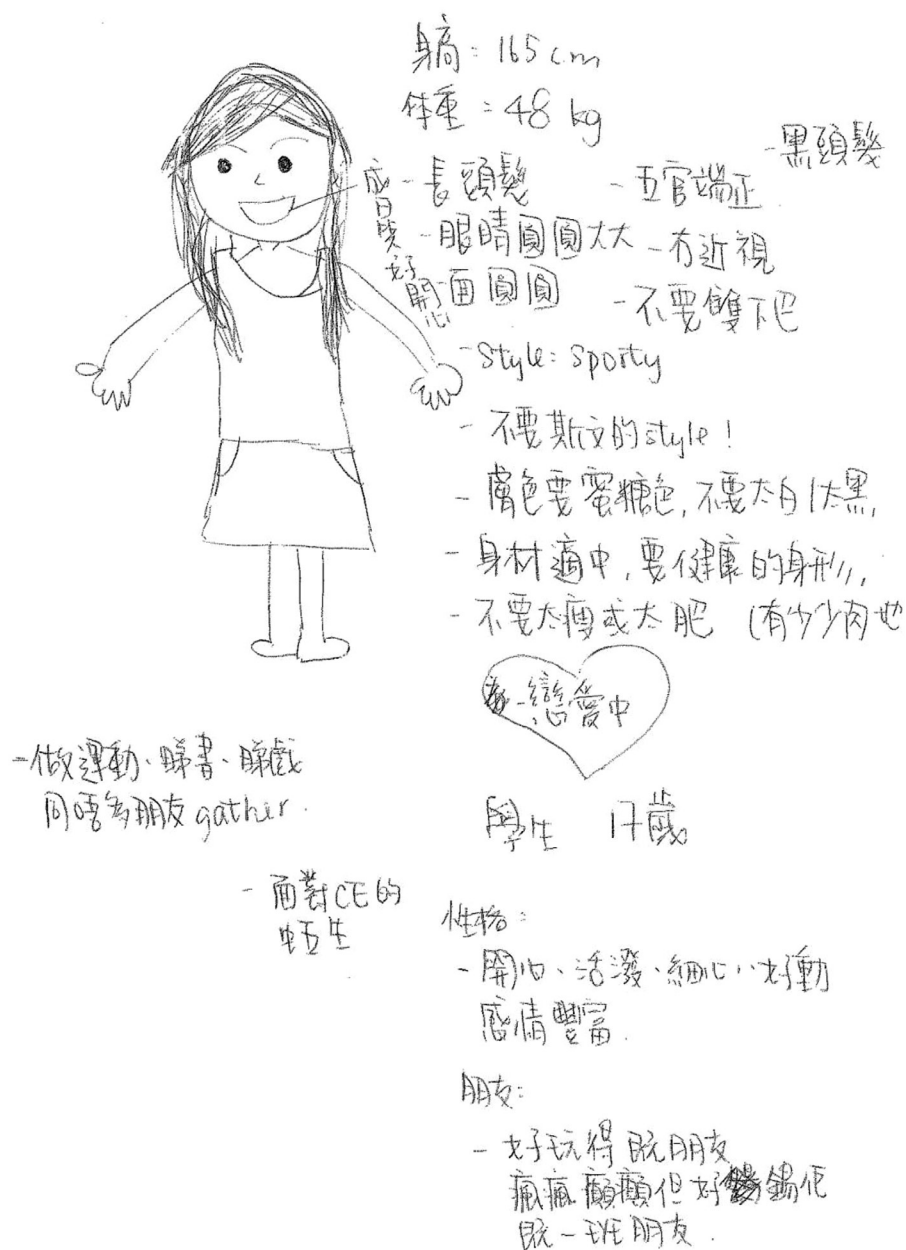 身高：165 cm
体重：48 kg
-黑頭髮
成日笑好開心
-長頭髮
-五官端正
-眼睛圓圓大大
-冇近視
面圓圓
-不要雙下巴
-Style: Sporty
-不要斯文的style！
-膚色要蜜糖色，不要太白/太黑，
-身材適中，要健康的身形，
-不要太瘦或太肥 (有少少肉地
-戀愛中
-做運動、睇書、睇戲
同唔多朋友gather.
學生 17歲
-面對CE的
中五生
性格：
-開心、活潑、細心、好動
感情豐富.
朋友：
-好玩得既朋友
瘋瘋癲癲但好錫佢
既一班朋友.